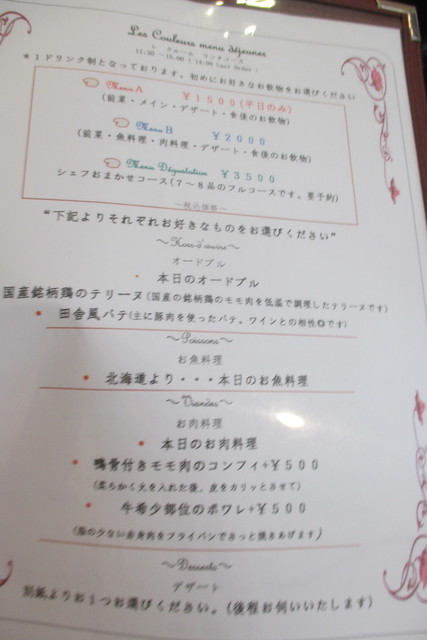 Les Couleurs menu déjeuner
レ クルール ランチコース
11:30～15:00 (14:00 Last Order)
★1ドリンク制となっております。初めにお好きなお飲物をお選びください
Menu A ¥1500(平日のみ)
(前菜・メイン・デザート・食後のお飲物)
Menu B ¥2000
(前菜・魚料理・肉料理・デザート・食後のお飲物)
Menu Dégustation ¥3500
シェフおまかせコース(7～8品のフルコースです。要予約)
～税込価格～
“下記よりそれぞれお好きなものをお選びください”
～Hors-d'oeuvre～
オードブル
本日のオードブル
国産銘柄鶏のテリーヌ(国産の銘柄鶏のモモ肉を低温で調理したテリーヌです)
田舎風パテ(主に豚肉を使ったパテ。ワインとの相性◎です)
～Poissons～
お魚料理
北海道より・・・本日のお魚料理
～Viandes～
お肉料理
本日のお肉料理
鴨骨付きモモ肉のコンフィ+¥500
(柔らかく火を入れた後、皮をカリッとさせて)
牛希少部位のポワレ+¥500
(脂の少ない赤身肉をフライパンでさっと焼きあげます)
～Desserts～
デザート
別紙よりお1つお選びください。(後程お伺いいたします)